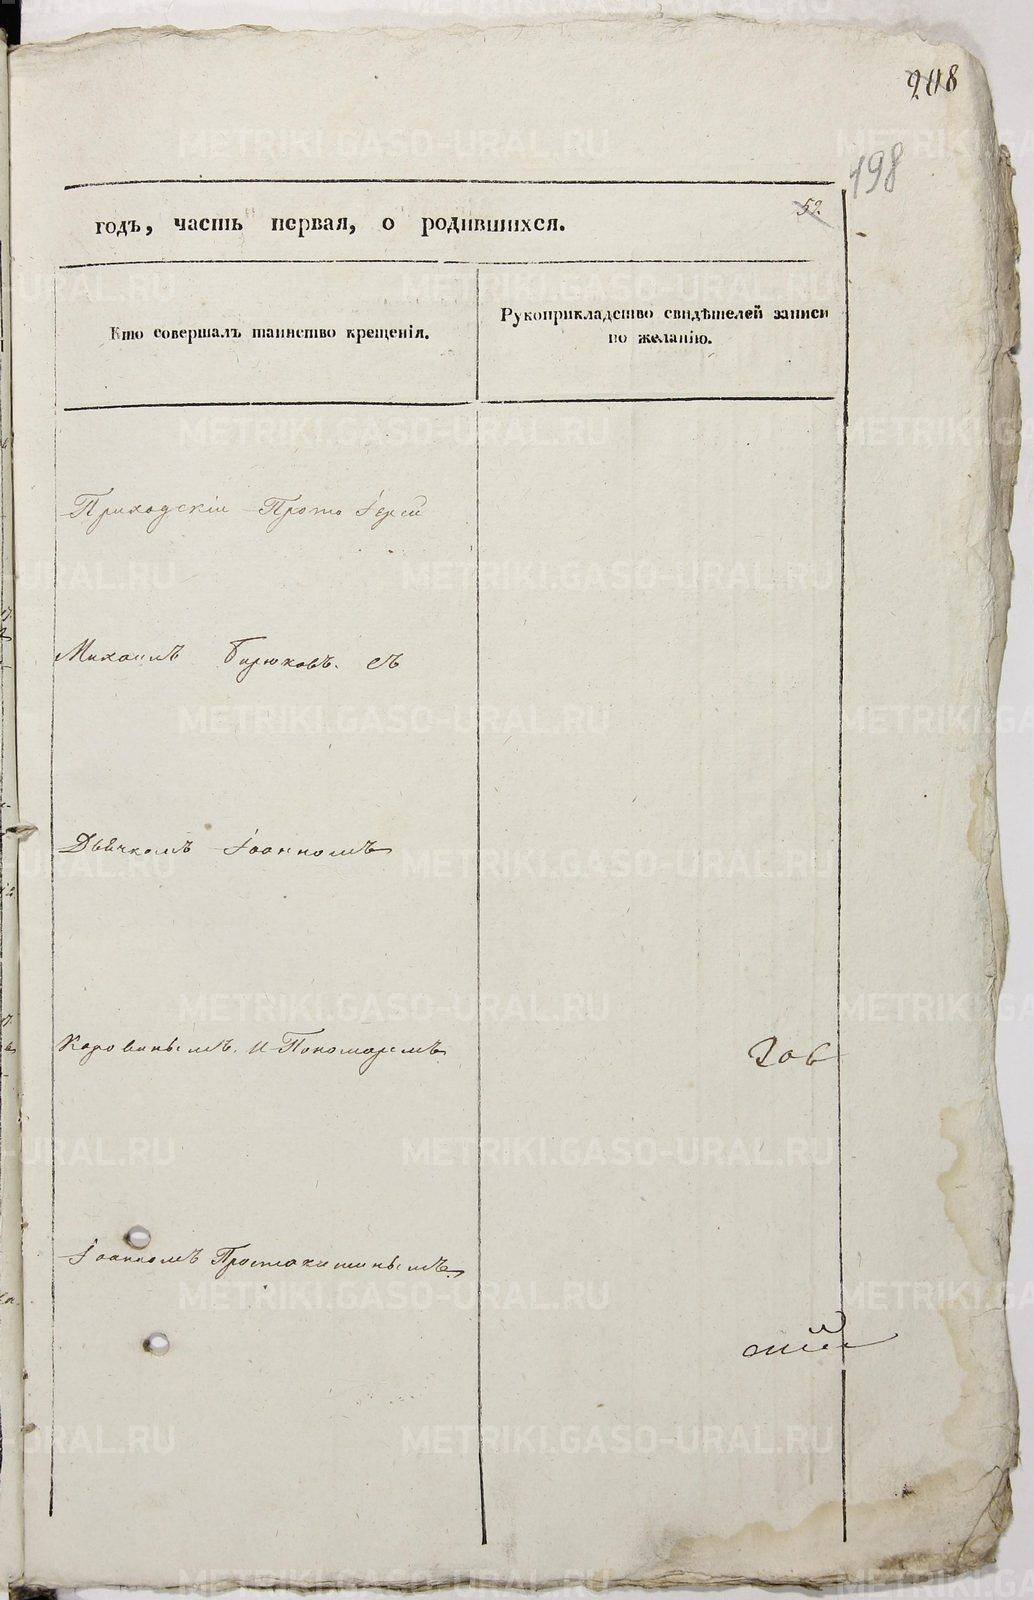 208
198
52.
годъ, часть первая, о родившихся.
Кто совершалъ таинство крещенія.
Рукоприкладство свидѣтелей записи
по желанію.
Приходскій Прото Іерей
Михаилъ Бирюковъ. съ
Дьячкомъ Іоанномъ
Коровинымъ. и Пономаремъ
Іоанномъ Простакишинымъ.